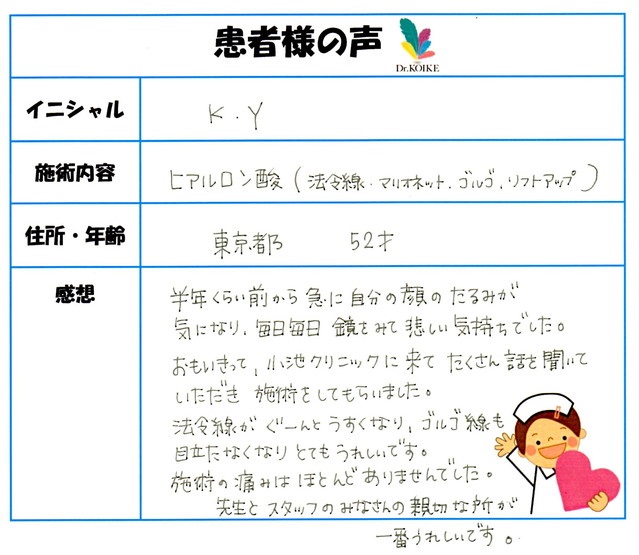 患者様の声
Dr.KOIKE
イニシャル
K.Y
施術内容
ヒアルロン酸(法令線・マリオネット.ゴルゴ.リフトアップ)
住所・年齢
東京都 52才
感想
半年くらい前から急に自分の顔のたるみが
気になり、毎日毎日鏡をみて悲しい気持ちでした。
おもいきって、小池クリニックに来てたくさん話を聞いて
いただき施術をしてもらいました。
法令線がぐーんとうすくなり、ゴルゴ線も
目立たなくなりとてもうれしいです。
施術の痛みはほとんどありませんでした。
先生とスタッフのみなさんの親切な所が
一番うれしいです。